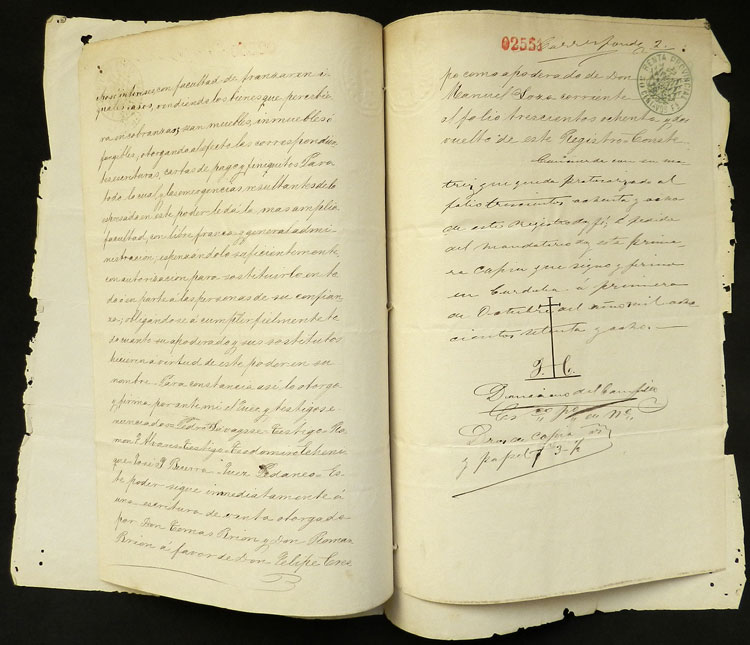 con facultad de transar en
casos, vendiendo los bienes que percibie
ra en cobranzas, sean muebles, inmuebles ó
fungibles, otorgando al efecto las correspondien
tes escrituras, cartas de pago y finiquitos. Para
todo lo cual y las emergencias resultantes de lo
espresado en este poder le dá la mas amplia
facultad, con libre, franca y general admi
nistracion, espresandolo suficientemente,
con autorizacion para sostituirlo en to
do ó en parte á las personas de su confian
za; obligandose á cumplir fielmente to
do cuanto su apoderado y sus sostitutos
hicieren á virtud de este poder en su
nombre. Para constancia asi lo otorga
y firma por ante mi el Juez y testigos e
nunciados. Pedro Testigo Ra
mon Testigo Teodomiro Eche
que José Juez Pedaneo. Es
te poder sigue inmediatamente á
una escritura de venta otorgada
por Don Tomas Brion y Don Roman
Brion á favor de Don Felipe Cres
02551 Corresponde 2.
RENTA PROVINCIAL
po como apoderado de Don
Manuel corriente
al folio trescientos ochenta y dos
vuelto de este Registro. Conste.
Concuerda con su ma
triz que queda protocolizado al
folio trescientos ochenta y ocho
de este Registro doy fé; á pedido
del mandatario doy esta prime
ra copia que signo y firmo
en Cordoba á primero
de Octubre del año mil ocho
cientos setenta y ocho.
Dros de copia
y papel 7 3